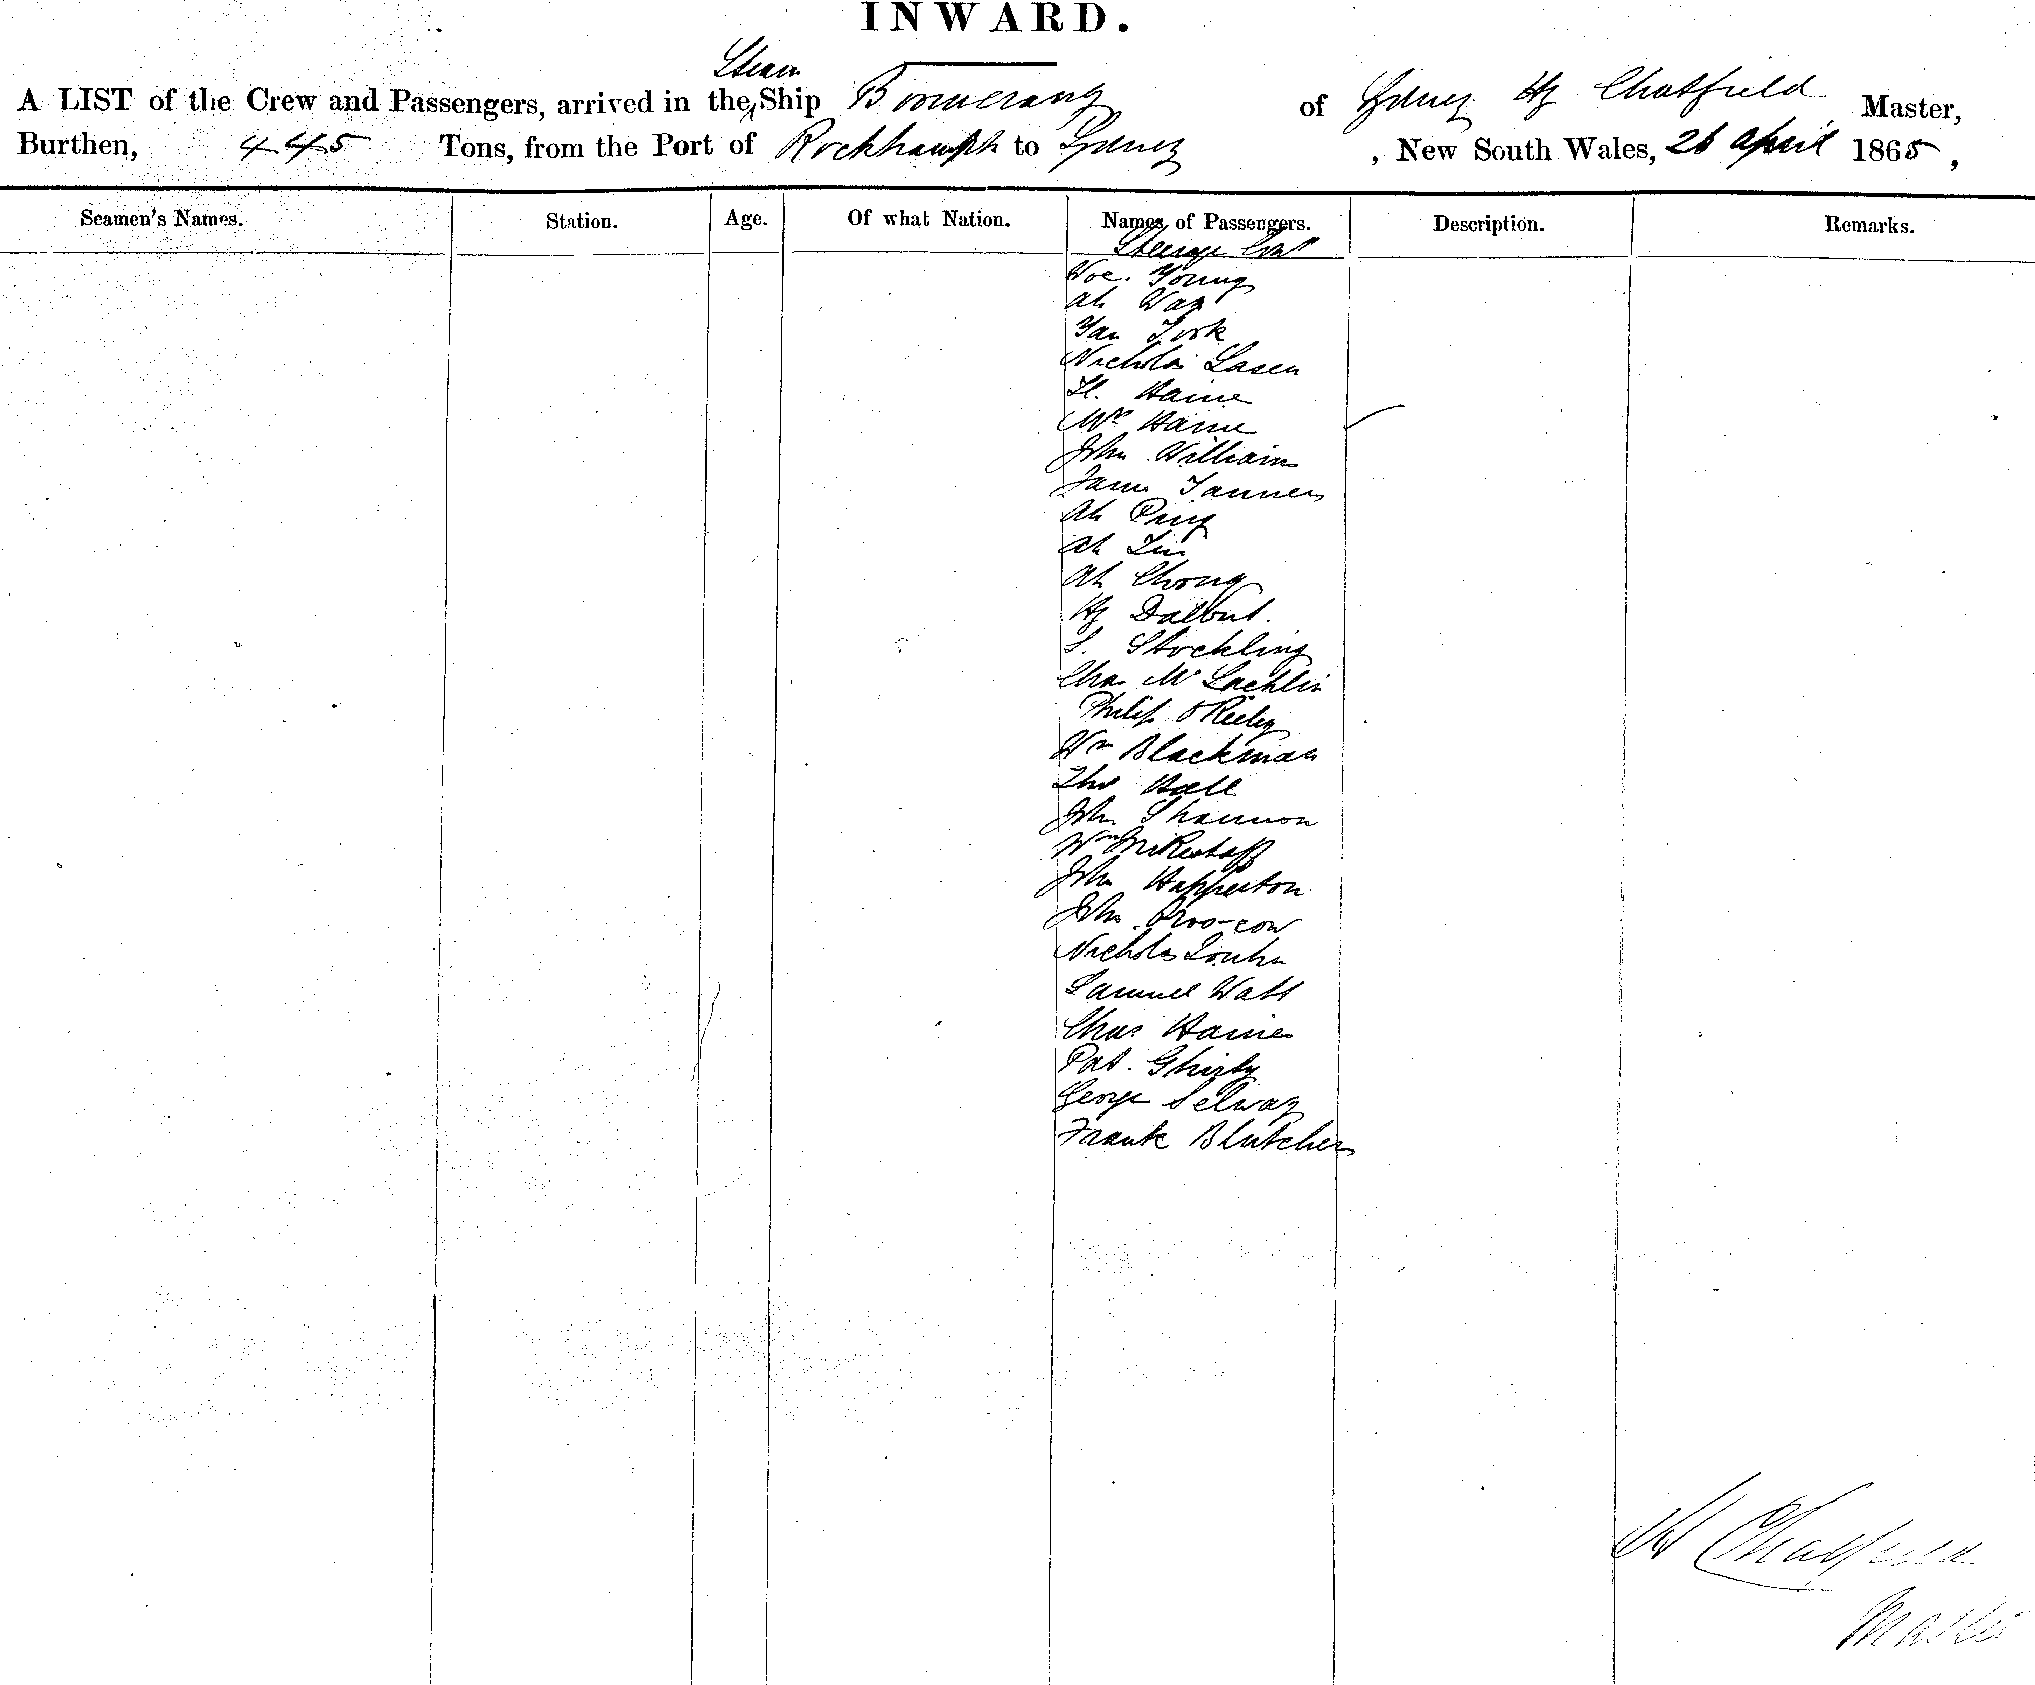 INWARD.
Steam
A LIST of the Crew and Passengers, arrived in the Ship Boomerang of Sydney Hy Chatfield Master,
Burthen, 445 Tons, from the Port of Rockhampth to Sydney, New South Wales, 26 April 1865,
Seamen's Names. Station. Age. Of what Nation. Names of Passengers. Description. Remarks.
Steerage Cont
Young
Ah Way
Yan
Nichols Lasen
Haine
Mrs Haine
John Williams
Jame Tanner
Ah Ping
Ah Lin
Ah Chong
Hy Dalbut.
S. Stockling
Chas McLachlin
Philip O'Reiley
Wm Blackman
Thos Hall
John Shannon
Wm
John Happerton
John
Nicholas
Samuel Watt
Chas Haines
Pat.
George Selway
Frank Blutcher
H Chatfield
Master